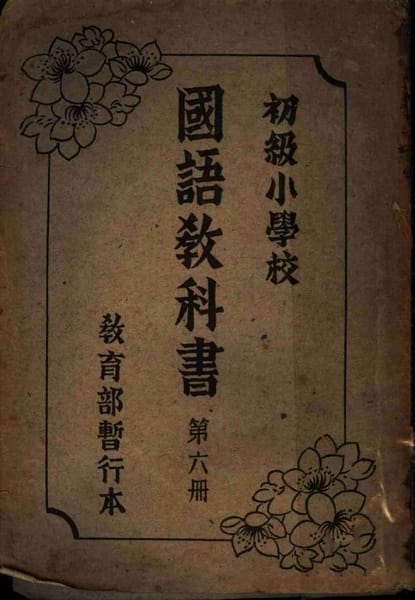 初級小學校
國語教科書 第六册
教育部暫行本